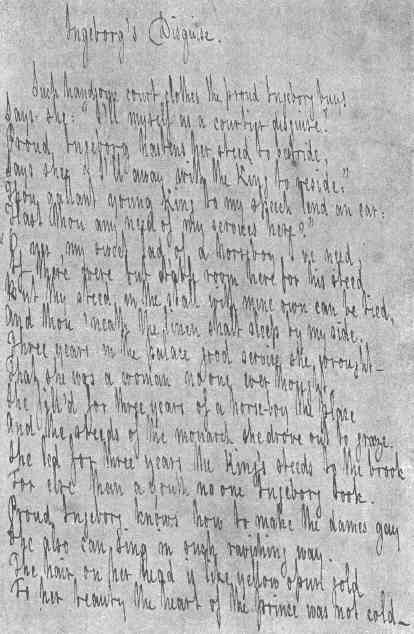 Ingeborg's Disguise.
Such handsome court clothes the proud Ingeborg buys,
Says she: "I'll myself as a courtier disguise."
Proud Ingeborg hastens her steed to bestride,
Says she: "I'll away with the King to reside."
"Thou gallant young King to my speech lend an ear:
Hast thou any need of my services here?"
"O yes, my sweet lad, of a horseboy I've need,
If there were but stable room here for his steed.
But thy steed in the stall with mine own can be tied,
And thou 'neath the linen shalt sleep by my side."
Three years in the palace good service she wrought—
That she was a woman no one ever thought.
She fill'd for three years of a horseboy the place
And the steeds of the monarch she drove out to graze.
She led for three years the King's steeds to the brook
For else than a youth no one Ingeborg took.
Proud Ingeborg knows how to make the dames gay
She also can sing in such ravishing way.
The hair on her head is like yellow spun gold
To her beauty the heart of the prince was not cold—